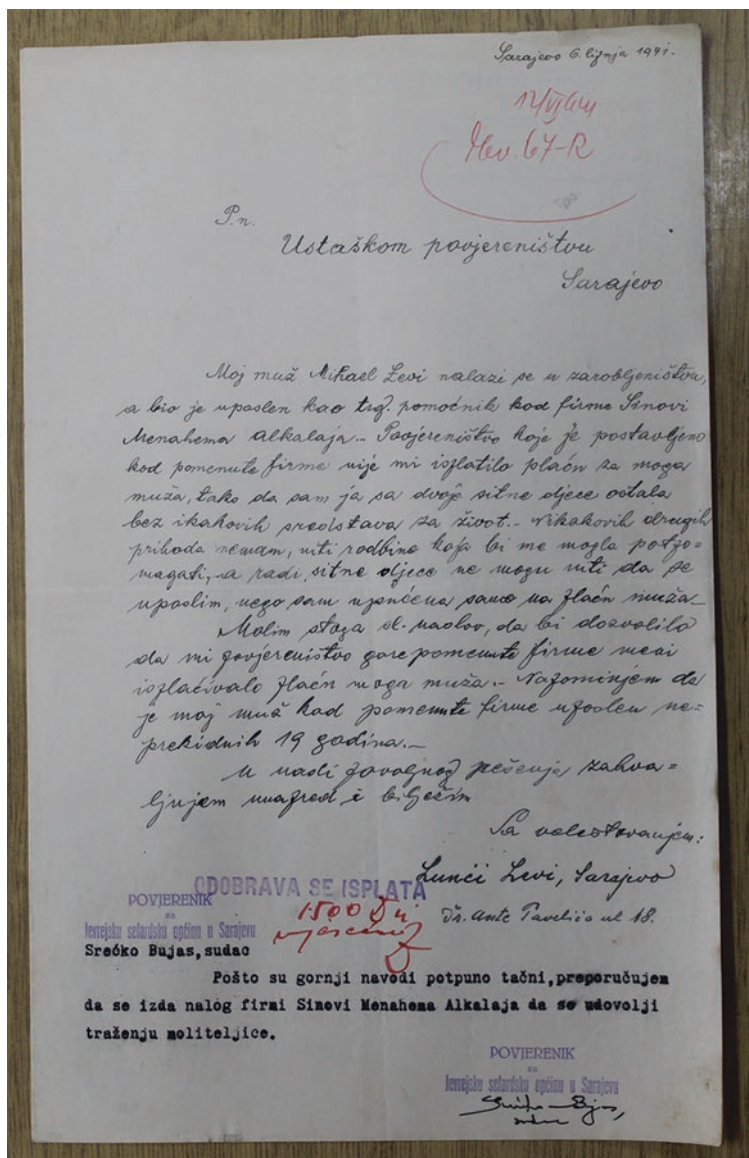 Sarajevo 6. lipnja 1941.
67-R
P.n.
Ustaškom povjereništvu
Sarajevo
Moj muž Mihael Levi nalazi se u zarobljeništvu,
a bio je uposlen kao trg. pomoćnik kod firme Sinovi
Menahema Alkalaja.- Povjereništvo koje je postavljeno
kod pomenute firme nije mi isplatilo plaću za moga
muža, tako da sam ja sa dvoje sitne djece ostala
bez ikakovih sredstava za život.- Nikakovih drugih
prihoda nemam, niti rodbine koja bi me mogla potpo-
magati, a radi sitne djece ne mogu niti da se
uposlim, nego sam upućena samo na plaću muža.-
Molim stoga sl. naslov, da bi dozvolilo
da mi povjereništvo gore pomenute firme meni
isplaćivalo plaću moga muža.- Napominjem da
je moj muž kod pomenute firme uposlen ne=
prekidnih 19 godina.-
U nadi povoljnog rješenja zahva=
ljujem unapred i bilježim
Sa veleštovanjem:
Lunči Levi, Sarajevo
Dr. Ante Pavelića ul 18.
ODOBRAVA SE ISPLATA
1500 Din
mjesečno
POVJERENIK
za
Jevrejsku sefardsku općinu u Sarajevu
Srećko Bujas, sudac
Pošto su gornji navodi potpuno tačni, preporučujem
da se izda nalog firmi Sinovi Menahema Alkalaja da se udovolji
traženju moliteljice.
POVJERENIK
za
Jevrejsku sefardsku općinu u Sarajevu
Srećko Bujas,
sudac